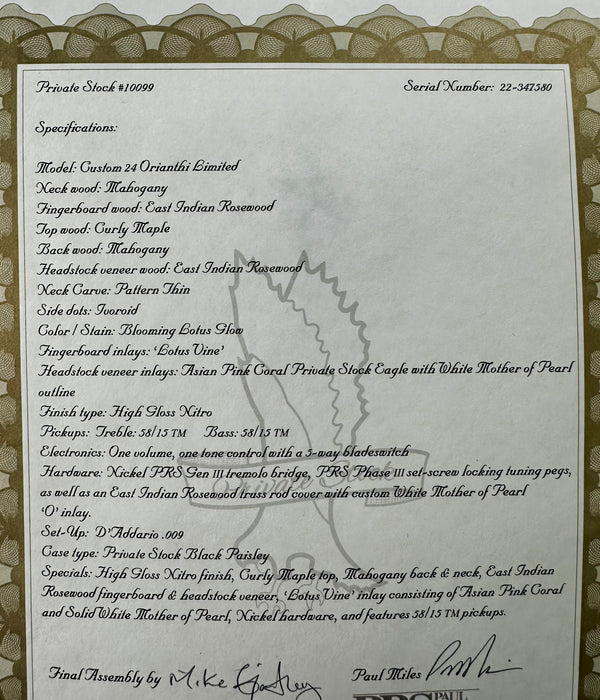 Private Stock #10099 Serial Number: 22-347580
Specifications:
Model: Custom 24 Orianthi Limited
Neck wood: Mahogany
Fingerboard wood: East Indian Rosewood
Top wood: Curly Maple
Back wood: Mahogany
Headstock veneer wood: East Indian Rosewood
Neck Carve: Pattern Thin
Side dots: Ivoroid
Color / Stain: Blooming Lotus Glow
Fingerboard inlays: 'Lotus Vine'
Headstock veneer inlays: Asian Pink Coral Private Stock Eagle with White Mother of Pearl
outline
Finish type: High Gloss Nitro
Pickups: Treble: 58/15 TM Bass: 58/15 TM
Electronics: One volume, one tone control with a 5-way bladeswitch
Hardware: Nickel PRS Gen III tremolo bridge, PRS Phase III set-screw locking tuning pegs,
as well as an East Indian Rosewood truss rod cover with custom White Mother of Pearl
'O' inlay.
Set-Up: D'Addario .009
Case type: Private Stock Black Paisley
Specials: High Gloss Nitro finish, Curly Maple top, Mahogany back & neck, East Indian
Rosewood fingerboard & headstock veneer, 'Lotus Vine' inlay consisting of Asian Pink Coral
and Solid White Mother of Pearl, Nickel hardware, and features 58/15 TM pickups.
Private Stock
Final Assembly by Mike Paul Miles
PRS PAUL